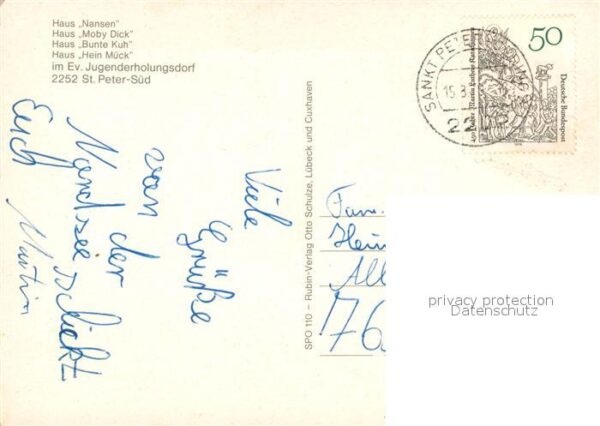 Haus „Nansen"
Haus „Moby Dick"
Haus „Bunte Kuh"
Haus „Hein Mück"
im Ev. Jugenderholungsdorf
2252 St. Peter-Süd
Viele
Grüße
von
der
Nordsee schickt
Euch
Martin
SPO 110 – Rubin-Verlag Otto Schulze, Lübeck und Cuxhaven
Fam.
Hein
All
76
SANKT PETER-ORDING
15.8.
2252
50
Deutsche Bundespost
450 Jahre Martin Luthers Katechismus
privacy protection
Datenschutz